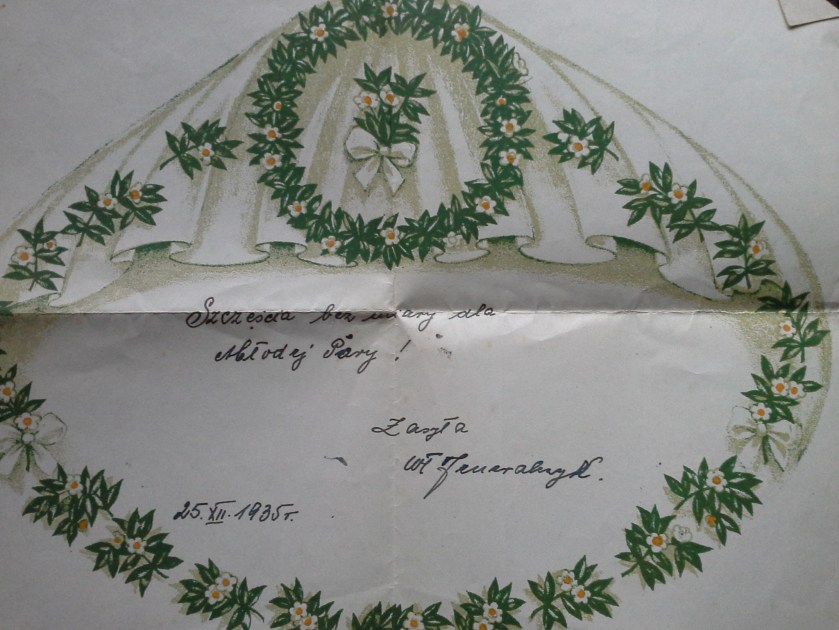 Szczęścia bez miary dla
Młodej Pary!
Zasyła
Wł Jeneralczyk.
25.XII.1935r.